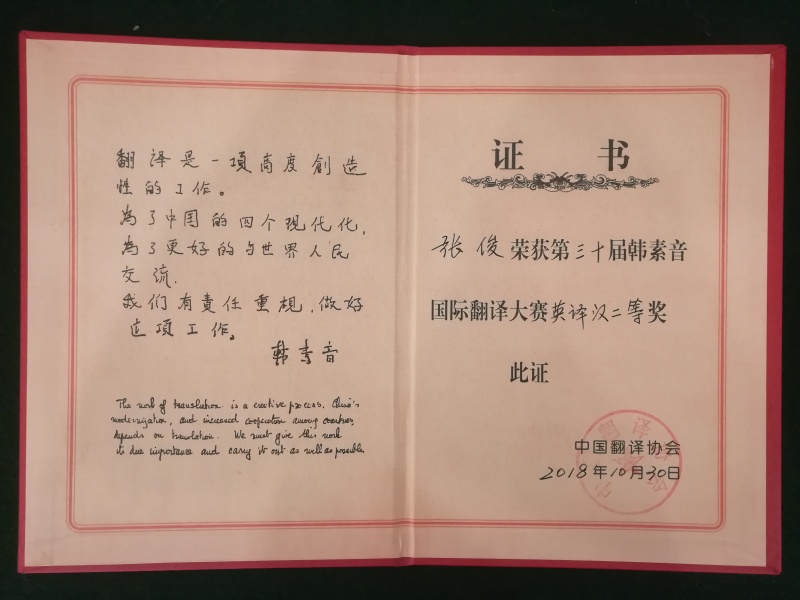 翻译是一項高度創造
性的工作。
為了中国的四个现代化,
為了更好的与世界人民
交流,
我们有責任重視,做好
这項工作。
韩素音
The work of translation is a creative process. China's
modernization, and increased cooperation among countries,
depends on translation. We must give this work
its due importance and carry it out as well as possible.
证 书
张俊荣获第三十届韩素音
国际翻译大赛英译汉二等奖
此证
中国翻译协会
2018年10月30日